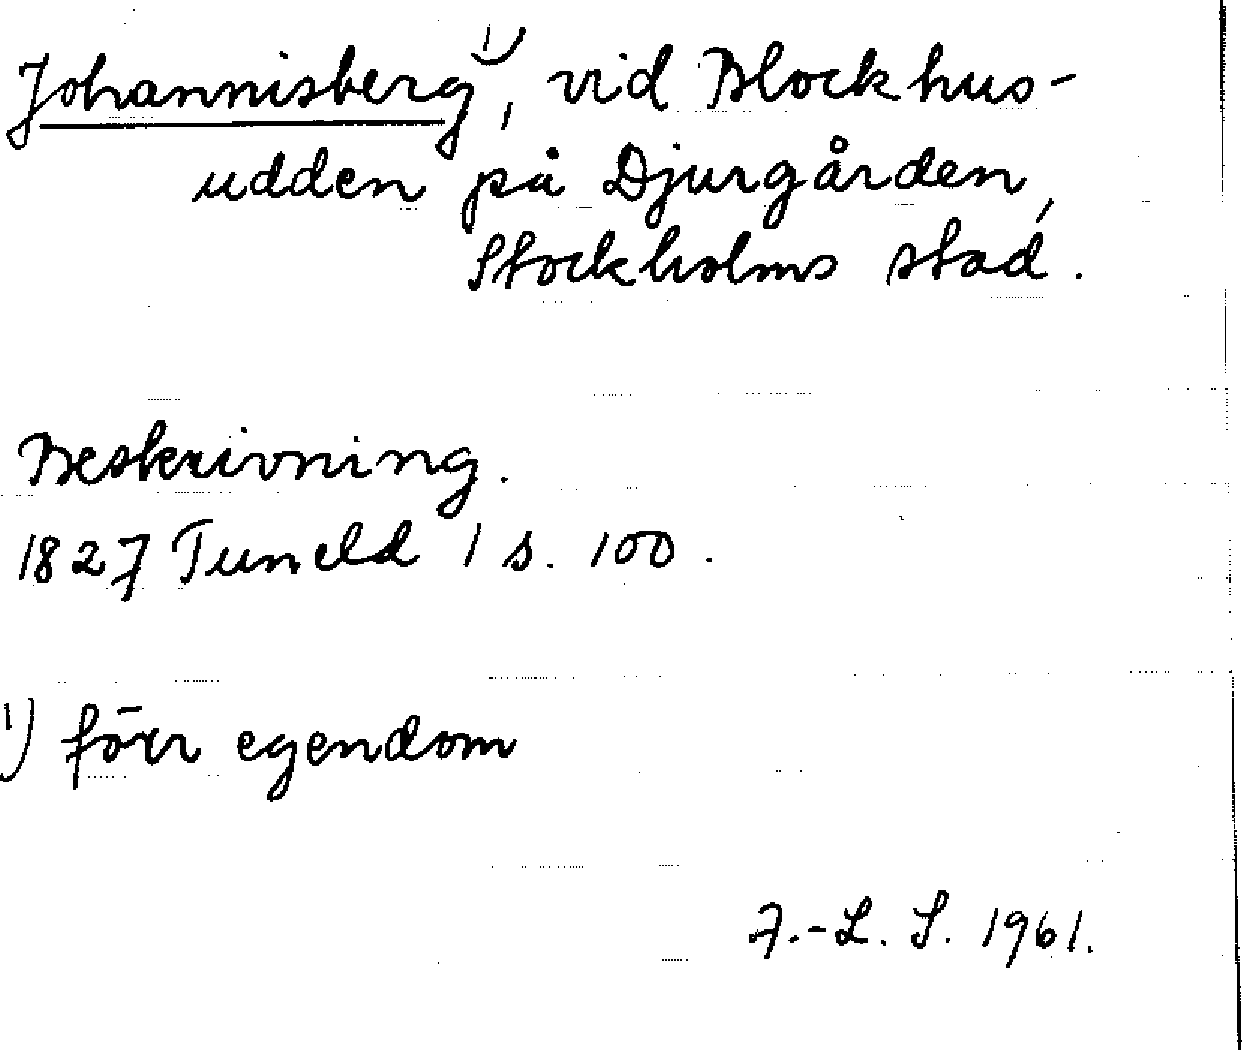 Johannisberg¹⁾, vid Blockhus-
udden på Djurgården,
Stockholms stad.
Beskrivning.
1827 Tuneld 1 s. 100.
¹⁾ förr egendom
F.-L. S. 1961.